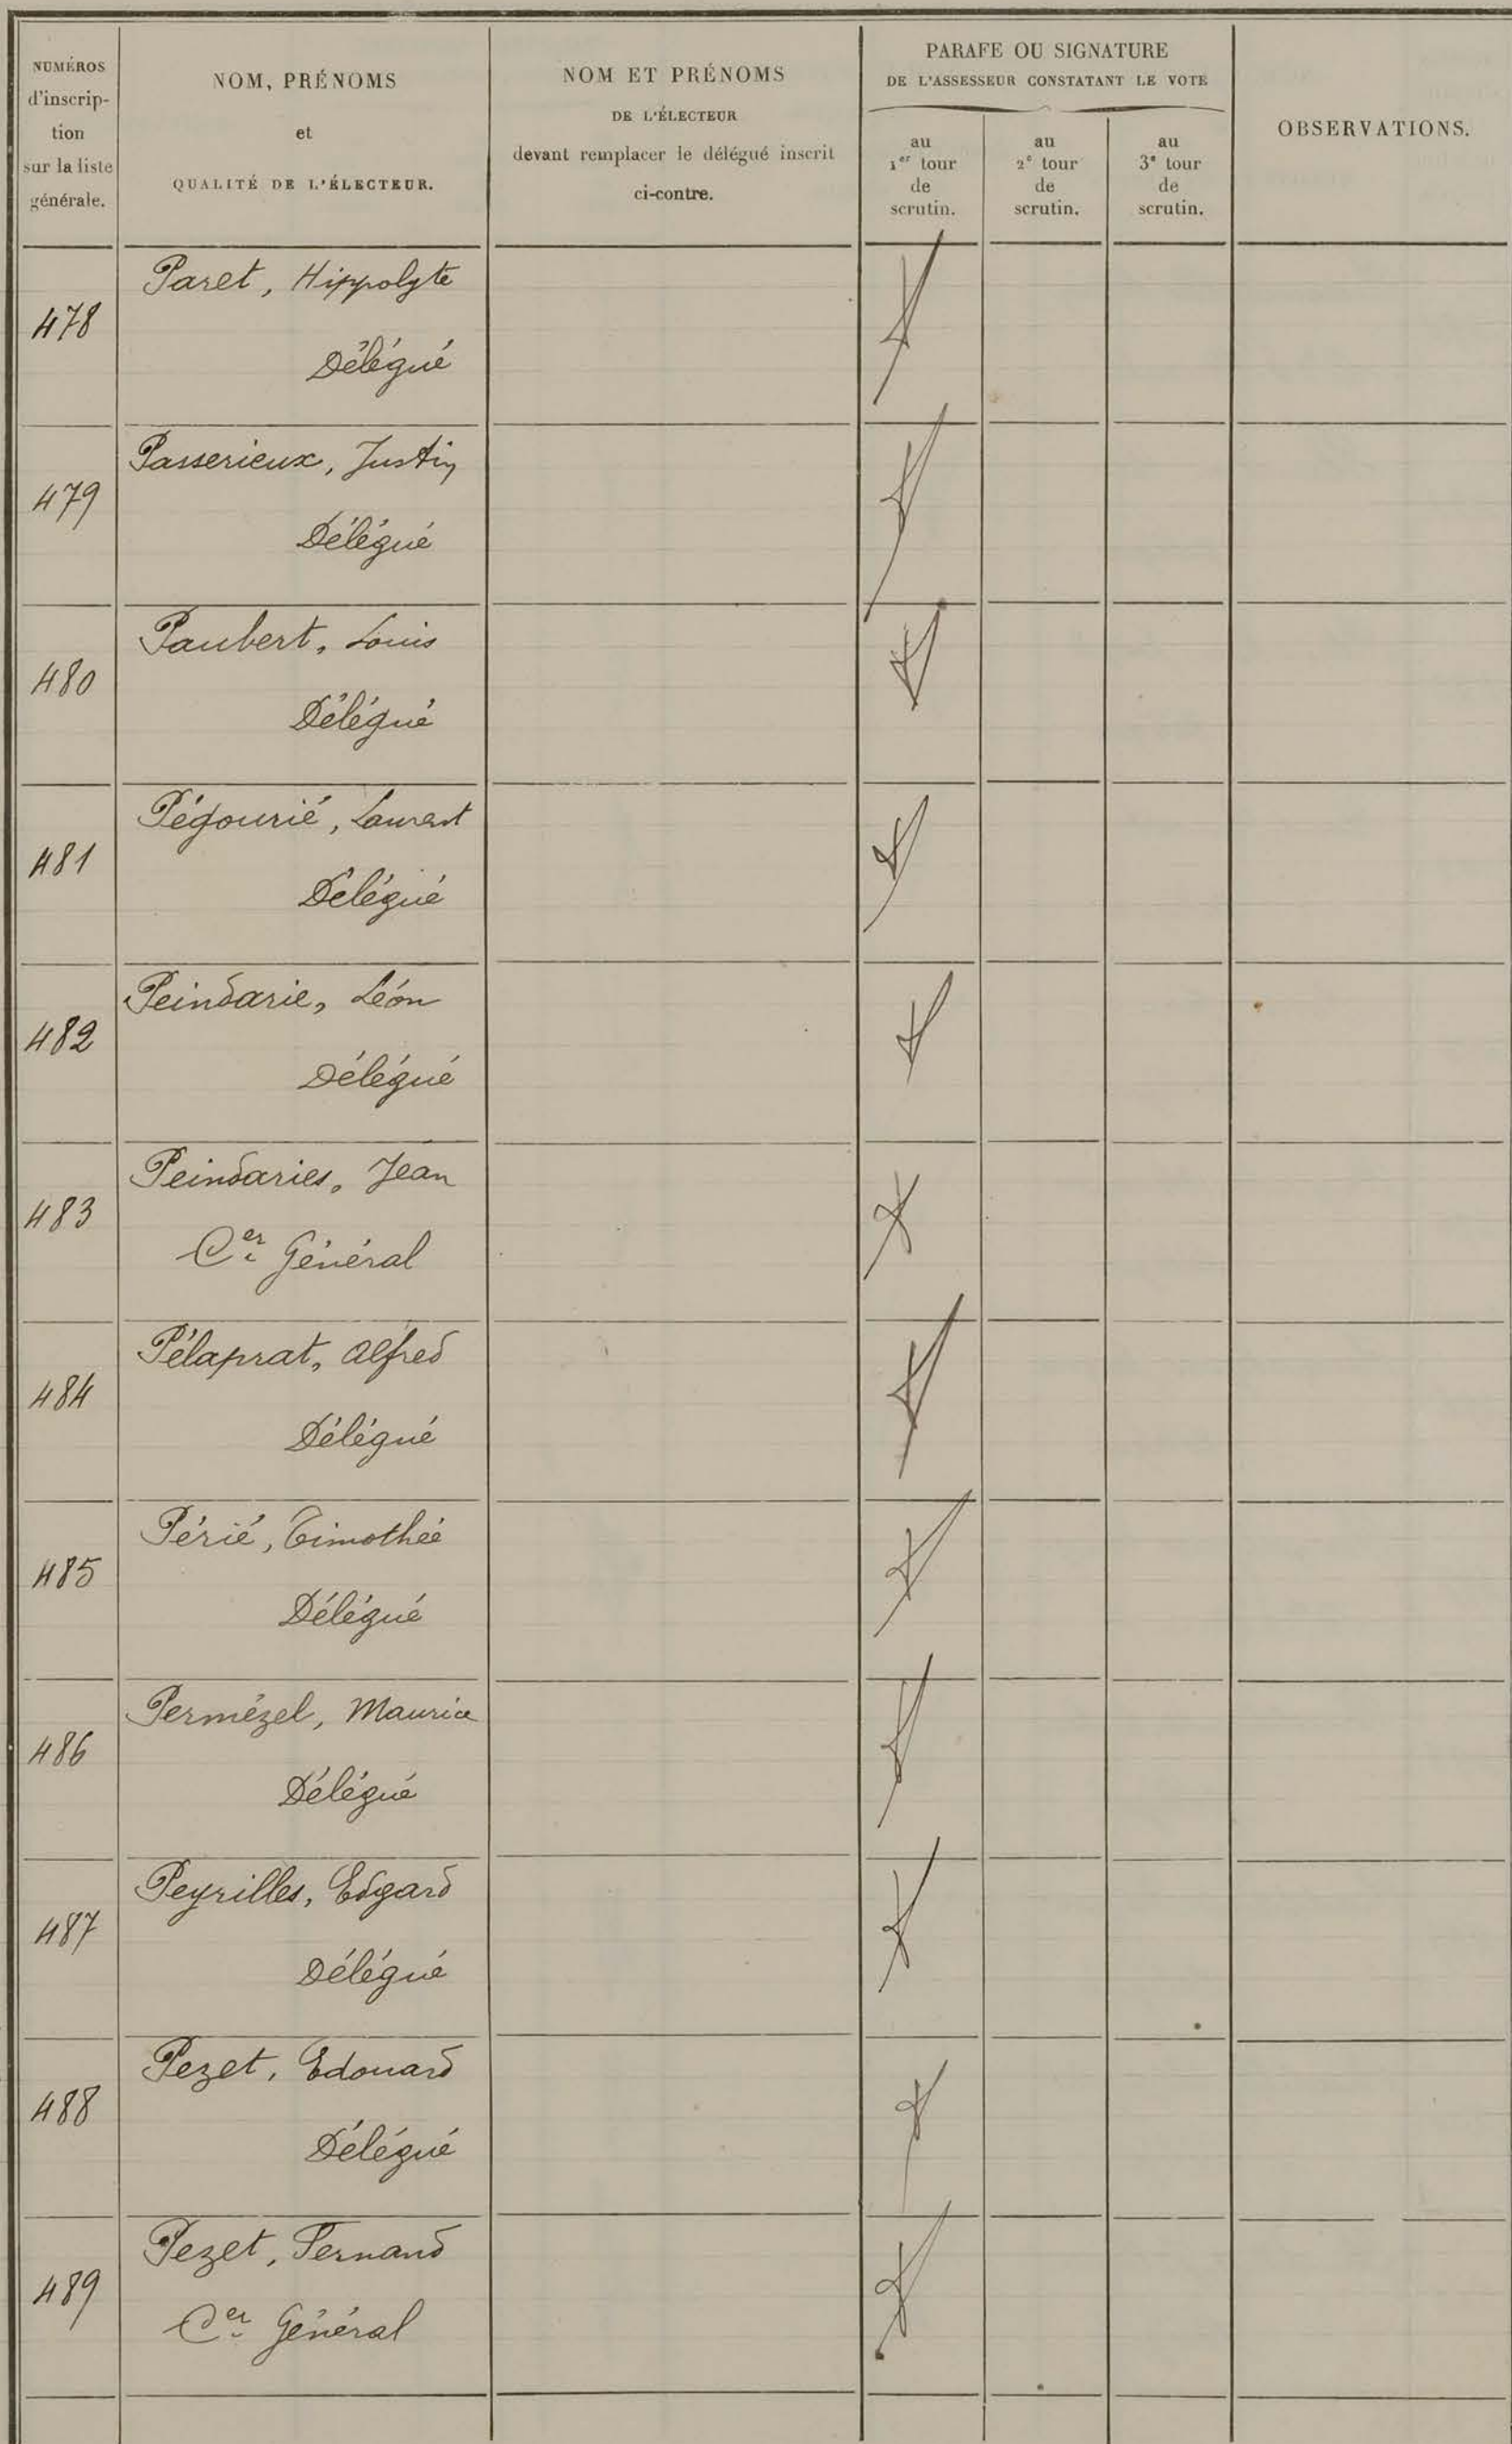 NUMÉROS
d'inscrip-
tion
sur la liste
générale.
NOM, PRÉNOMS
et
QUALITÉ DE L'ÉLECTEUR.
NOM ET PRÉNOMS
DE L'ÉLECTEUR
devant remplacer le délégué inscrit
ci-contre.
PARAFE OU SIGNATURE
DE L'ASSESSEUR CONSTATANT LE VOTE
au
1er tour
de
scrutin.
au
2e tour
de
scrutin.
au
3e tour
de
scrutin.
OBSERVATIONS.
478
Paret, Hippolyte
Délégué
479
Passerieux, Justin
Délégué
480
Paubert, Louis
Délégué
481
Pégourié, Laurent
Délégué
482
Peindarie, Léon
Délégué
483
Peindaries, Jean
Cer Général
484
Pélaprat, Alfred
Délégué
485
Périé, Timothée
Délégué
486
Permézel, Maurice
Délégué
487
Peyrilles, Edgard
Délégué
488
Pezet, Edouard
Délégué
489
Pezet, Fernand
Cer Général